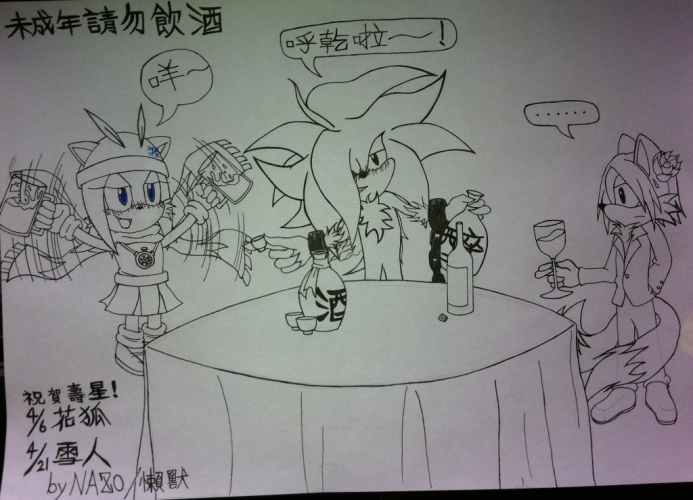 未成年請勿飲酒
呼乾啦～!
咩～
......
酒
酒
祝賀壽星!
4/6 花狐
4/21 雪人
by NAZO/懶獸